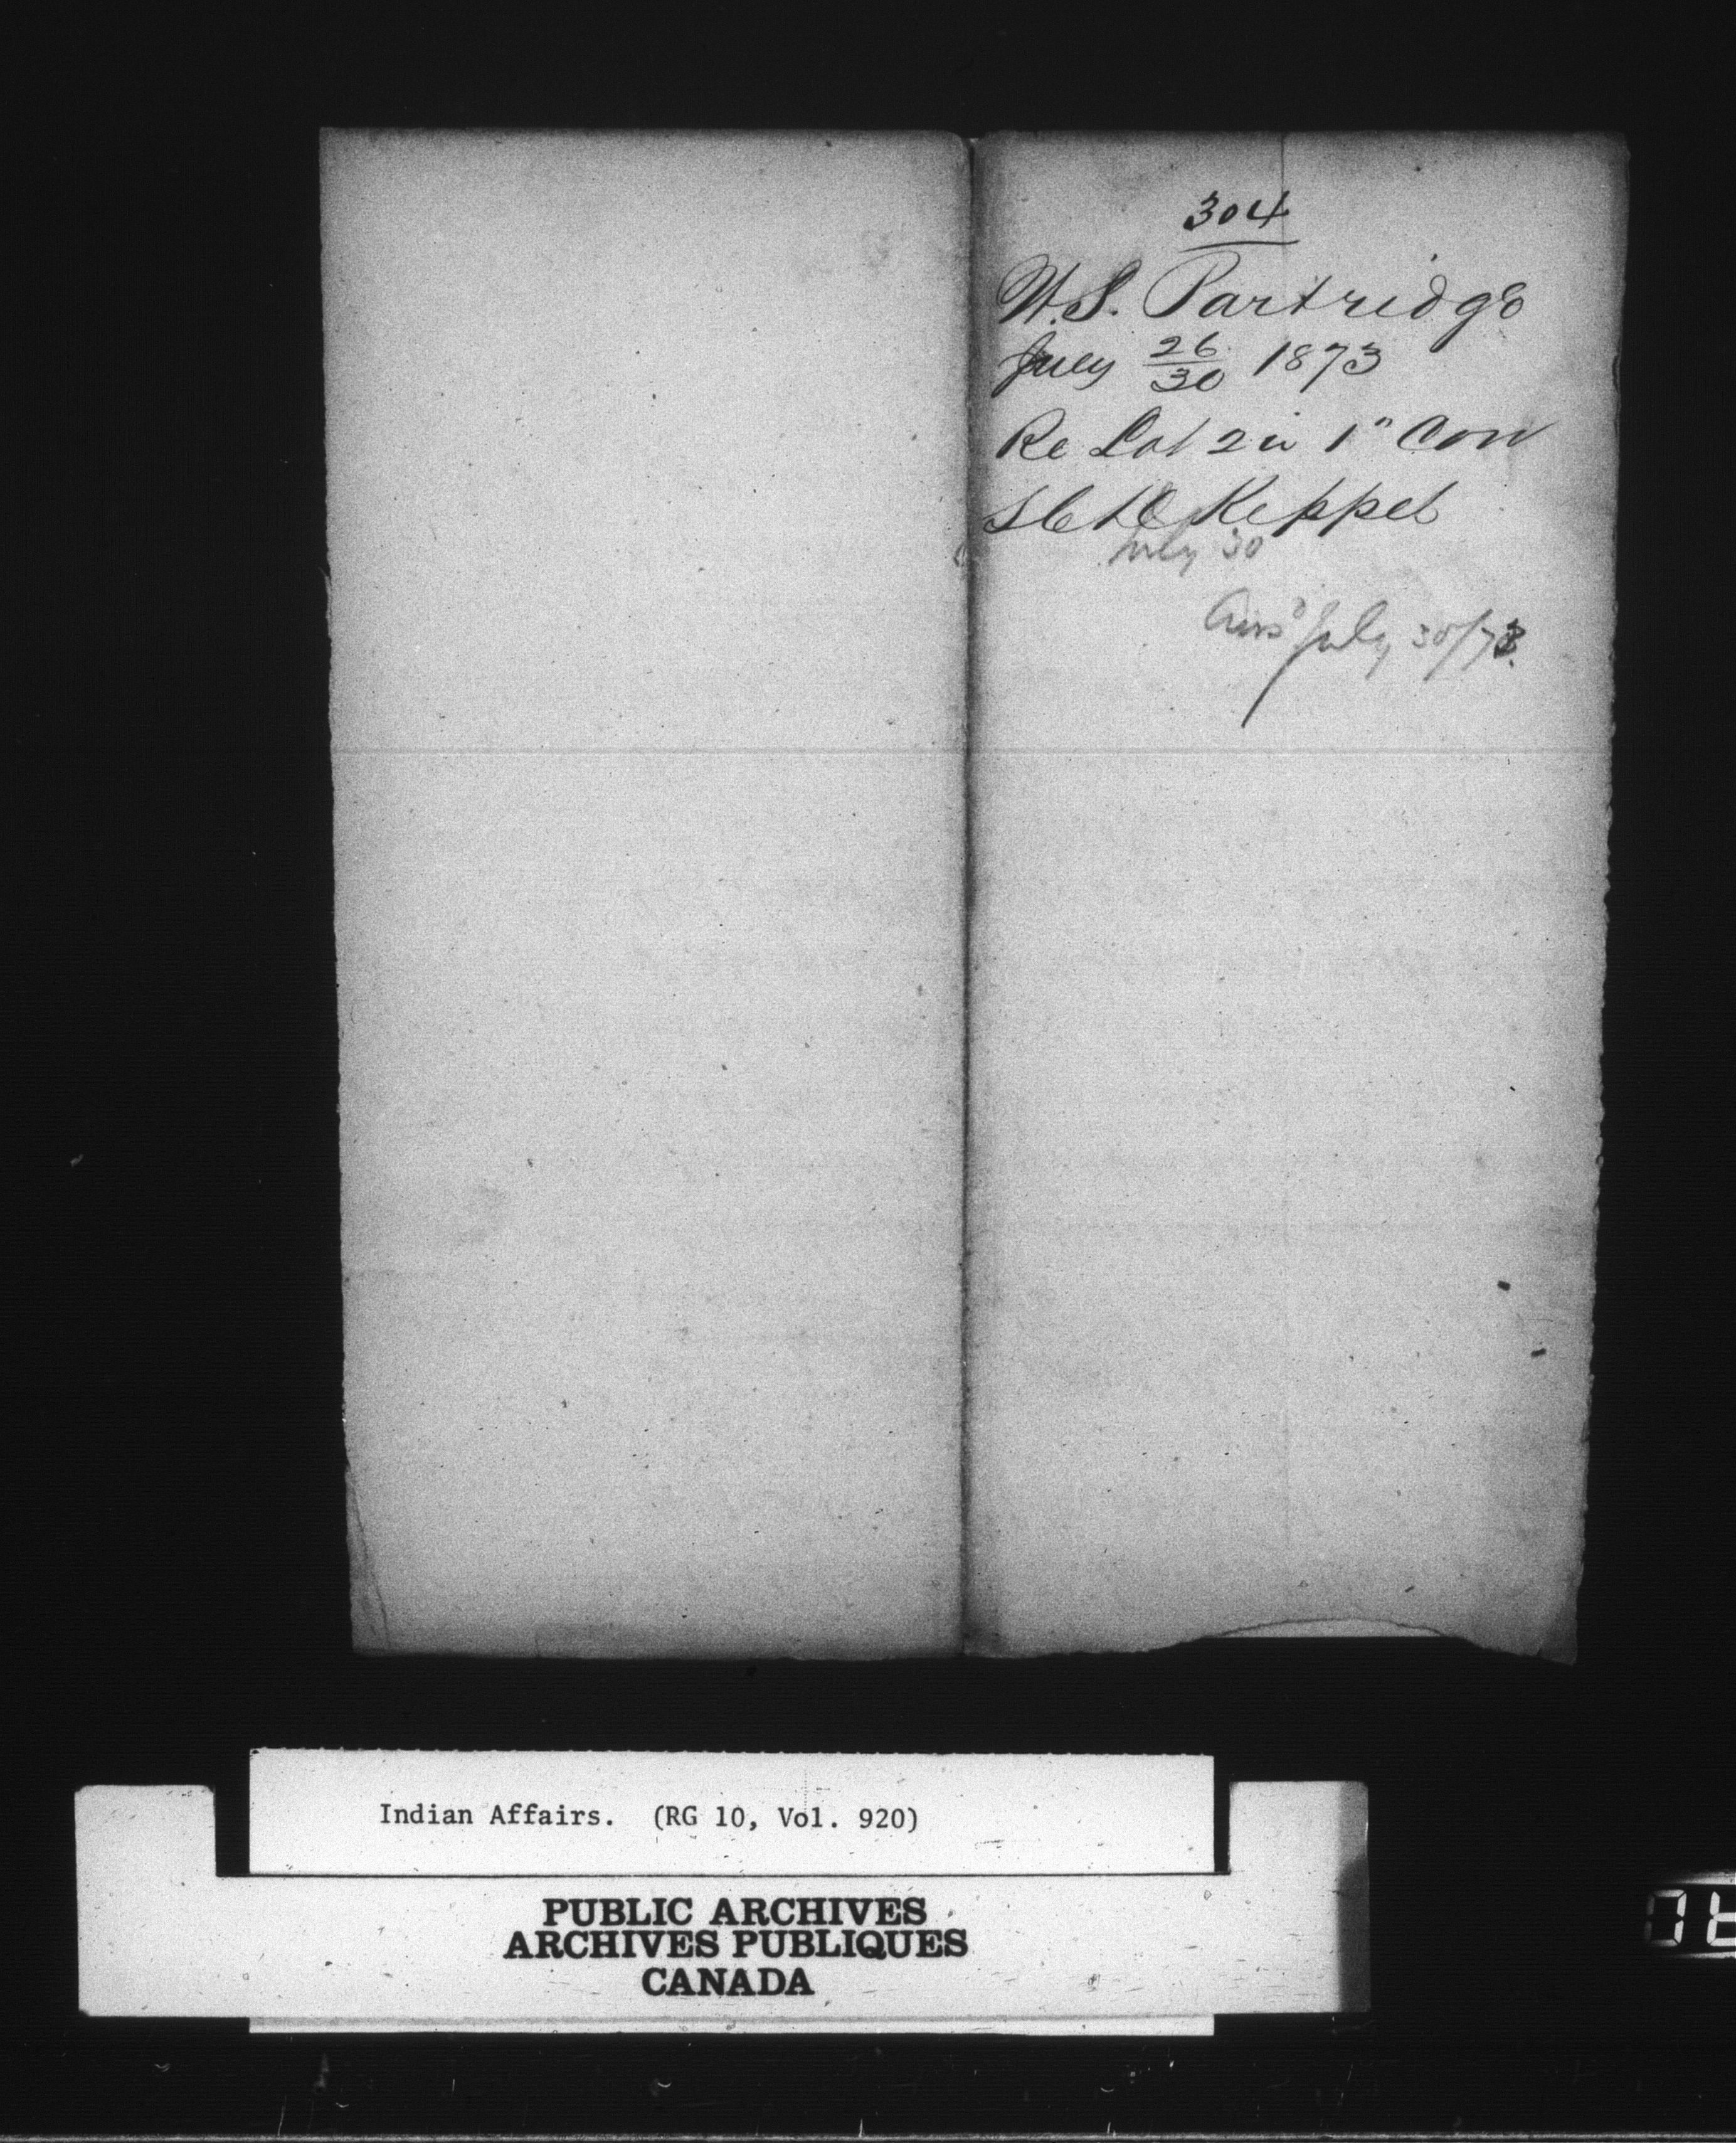 304
W.S. Partridge
July 26/30 1873
Re Lot 2 in 1" Con
Keppel
July 30
Ansd July 30/73.
Indian Affairs. (RG 10, Vol. 920)
PUBLIC ARCHIVES
ARCHIVES PUBLIQUES
CANADA